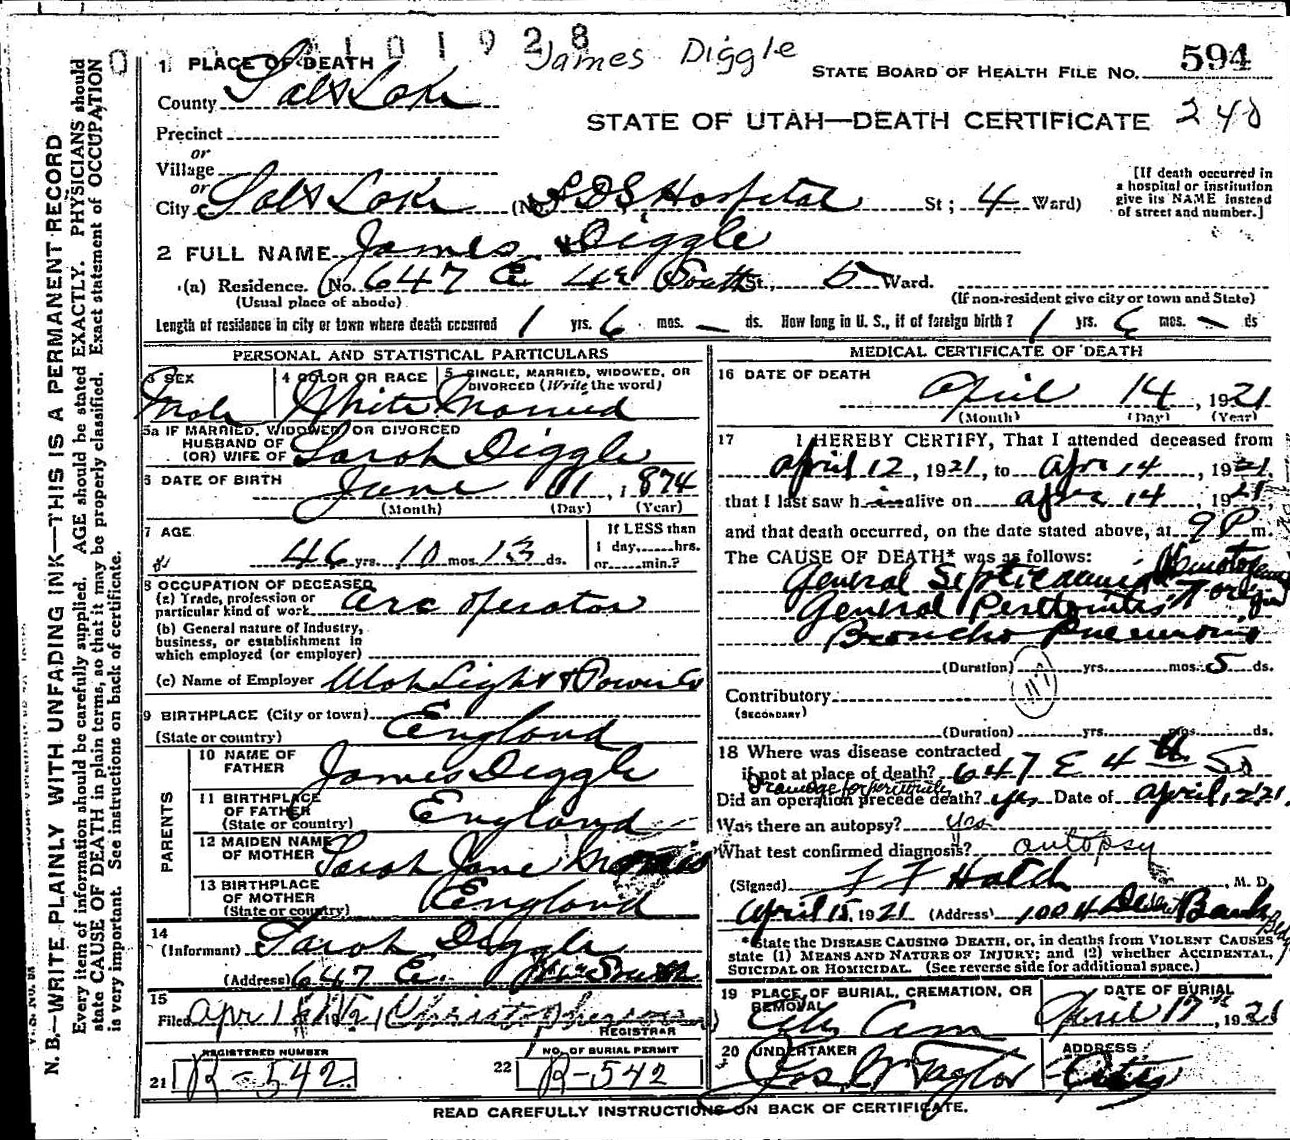 0 101928
James Diggle
594
STATE BOARD OF HEALTH FILE NO.
1 PLACE OF DEATH
County Salt Lake
STATE OF UTAH—DEATH CERTIFICATE 240
Precinct
or
Village
or
City Salt Lake (No. LDS Hospital St; 4 Ward)
[If death occurred in
a hospital or institution
give its NAME instead
of street and number.]
2 FULL NAME James Diggle
(a) Residence. No. 647 E 4th South St., 5 Ward.
(Usual place of abode)
(If non-resident give city or town and State)
Length of residence in city or town where death occurred 1 yrs. 6 mos. – ds. How long in U. S., if of foreign birth? 1 yrs. 6 mos. – ds
PERSONAL AND STATISTICAL PARTICULARS
3 SEX
Male
4 COLOR OR RACE
White
5 SINGLE, MARRIED, WIDOWED, OR
DIVORCED (Write the word)
Married
5a IF MARRIED, WIDOWED, OR DIVORCED
HUSBAND OF
(OR) WIFE OF Sarah Diggle
6 DATE OF BIRTH
June 1, 1874
(Month) (Day) (Year)
7 AGE
46 yrs. 10 mos. 13 ds.
If LESS than
1 day,......hrs.
or......min.?
8 OCCUPATION OF DECEASED
(a) Trade, profession or
particular kind of work Arc operator
(b) General nature of Industry,
business, or establishment in
which employed (or employer)
(c) Name of Employer Utah Light & Power Co
9 BIRTHPLACE (City or town)
(State or country) England
PARENTS
10 NAME OF
FATHER James Diggle
11 BIRTHPLACE
OF FATHER
(State or country) England
12 MAIDEN NAME
OF MOTHER Sarah Jane
13 BIRTHPLACE
OF MOTHER
(State or country) England
14
(Informant) Sarah Diggle
(Address) 647 E. 4th South
15
Filed Apr 1921 Christopherson
REGISTRAR
REGISTERED NUMBER
21 R-542
NO. OF BURIAL PERMIT
22 R-542
MEDICAL CERTIFICATE OF DEATH
16 DATE OF DEATH
April 14, 1921
(Month) (Day) (Year)
17 I HEREBY CERTIFY, That I attended deceased from
April 12, 1921, to Apr 14, 1921,
that I last saw h im alive on Apr 14, 1921,
and that death occurred, on the date stated above, at 9 P m.
The CAUSE OF DEATH* was as follows:
General Septicaemia
General Peritonitis origin
Broncho Pneumonia
(Duration) yrs. mos. 5 ds.
117
Contributory
(SECONDARY)
(Duration) yrs. mos. ds.
18 Where was disease contracted
if not at place of death? 647 E 4th So
Drainage for peritonitis
Did an operation precede death? yes Date of April 12 '21.
Was there an autopsy? Yes
What test confirmed diagnosis? autopsy
(Signed) F F Hatch, M. D.
April 15, 1921 (Address) 1004 Deseret Bank Bldg
*State the DISEASE CAUSING DEATH, or, in deaths from VIOLENT CAUSES
state (1) MEANS AND NATURE OF INJURY; and (2) whether ACCIDENTAL,
SUICIDAL OR HOMICIDAL. (See reverse side for additional space.)
19 PLACE OF BURIAL, CREMATION, OR
REMOVAL
City Cem
DATE OF BURIAL
April 17th, 1921
20 UNDERTAKER
Jos W Taylor
ADDRESS
City
READ CAREFULLY INSTRUCTIONS ON BACK OF CERTIFICATE.
N. B.—WRITE PLAINLY WITH UNFADING INK—THIS IS A PERMANENT RECORD
Every item of information should be carefully supplied. AGE should be stated EXACTLY. PHYSICIANS should
state CAUSE OF DEATH in plain terms, so that it may be properly classified. Exact statement of OCCUPATION
is very important. See instructions on back of certificate.